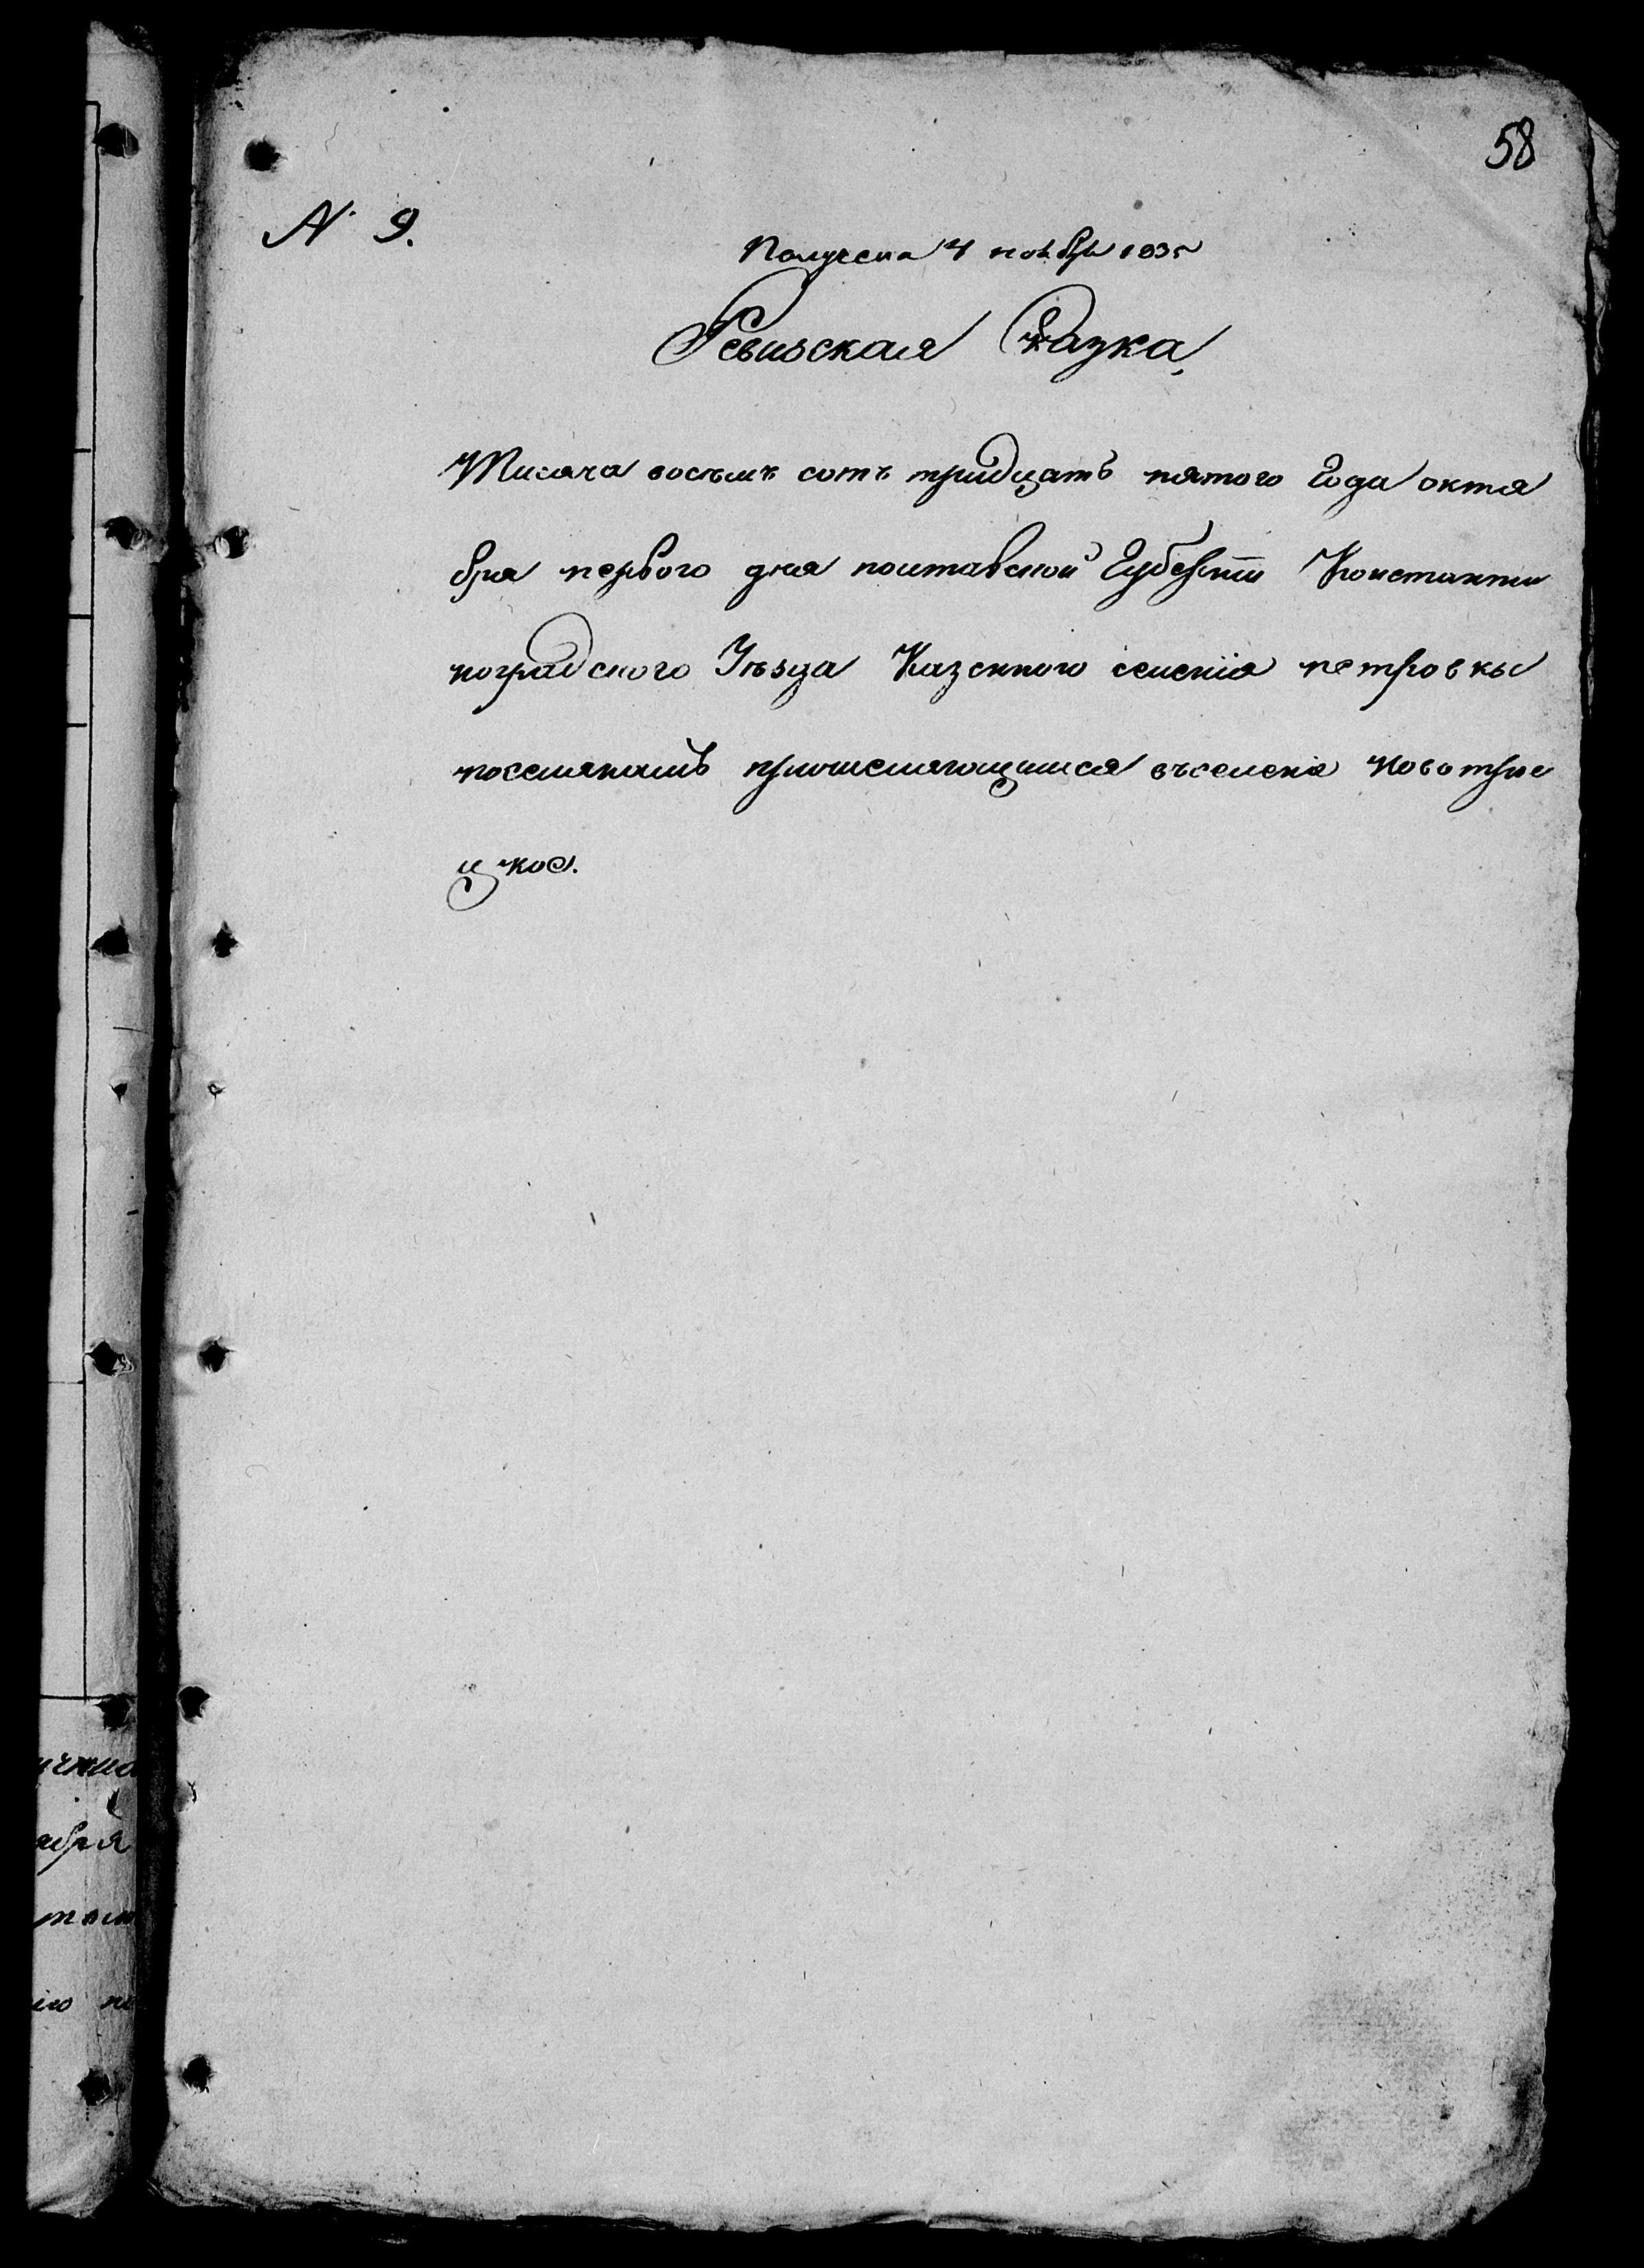 58
№ 9.
Получена 4 ноября 1835
Ревизская Сказка,
Тисяча восъмъ сотъ тридцать пятого Года октя
бря первого дня полтавской Губерніи Константи
ноградского Уѣзда Казенного селенія петровки
поселянамъ причисляющимся въселеніе новотрое
цкое.